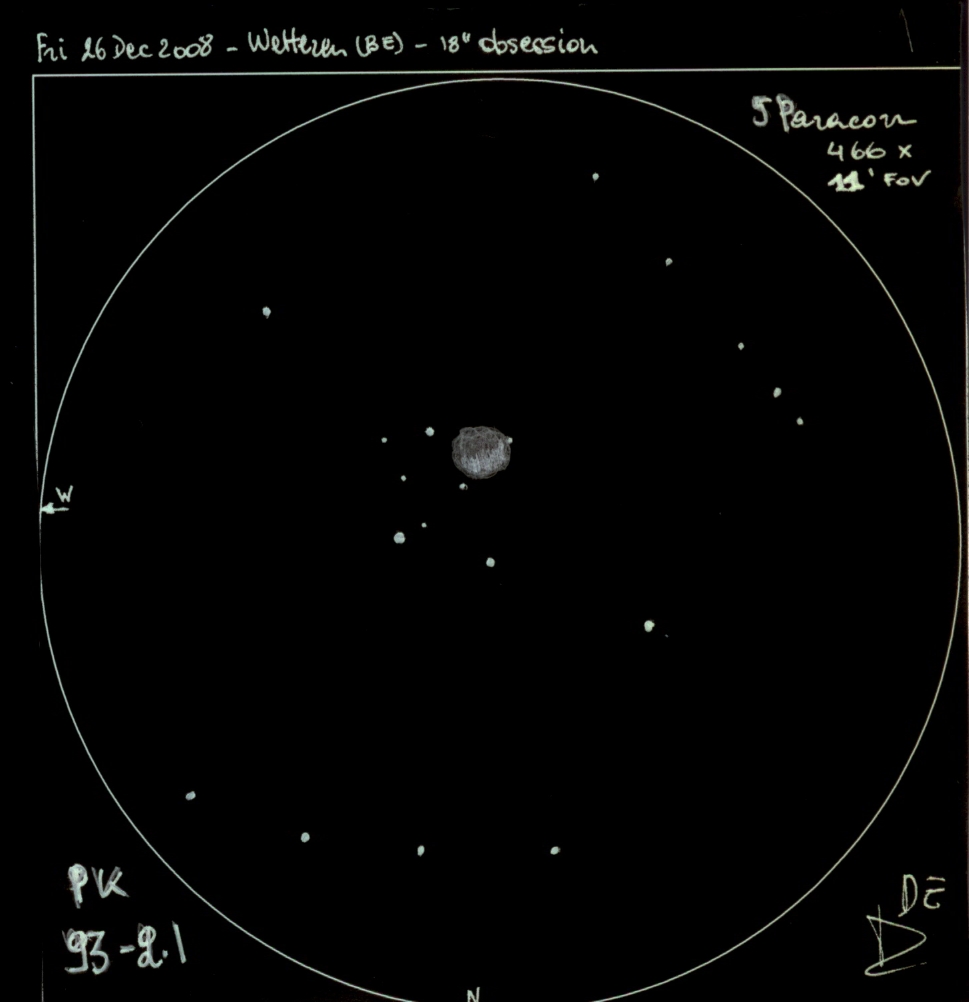 Fri 26 Dec 2008 - Wetteren (BE) - 18" obsession
5 Paracorr
466 x
11' FOV
W
PK
93-2.1
DE
N